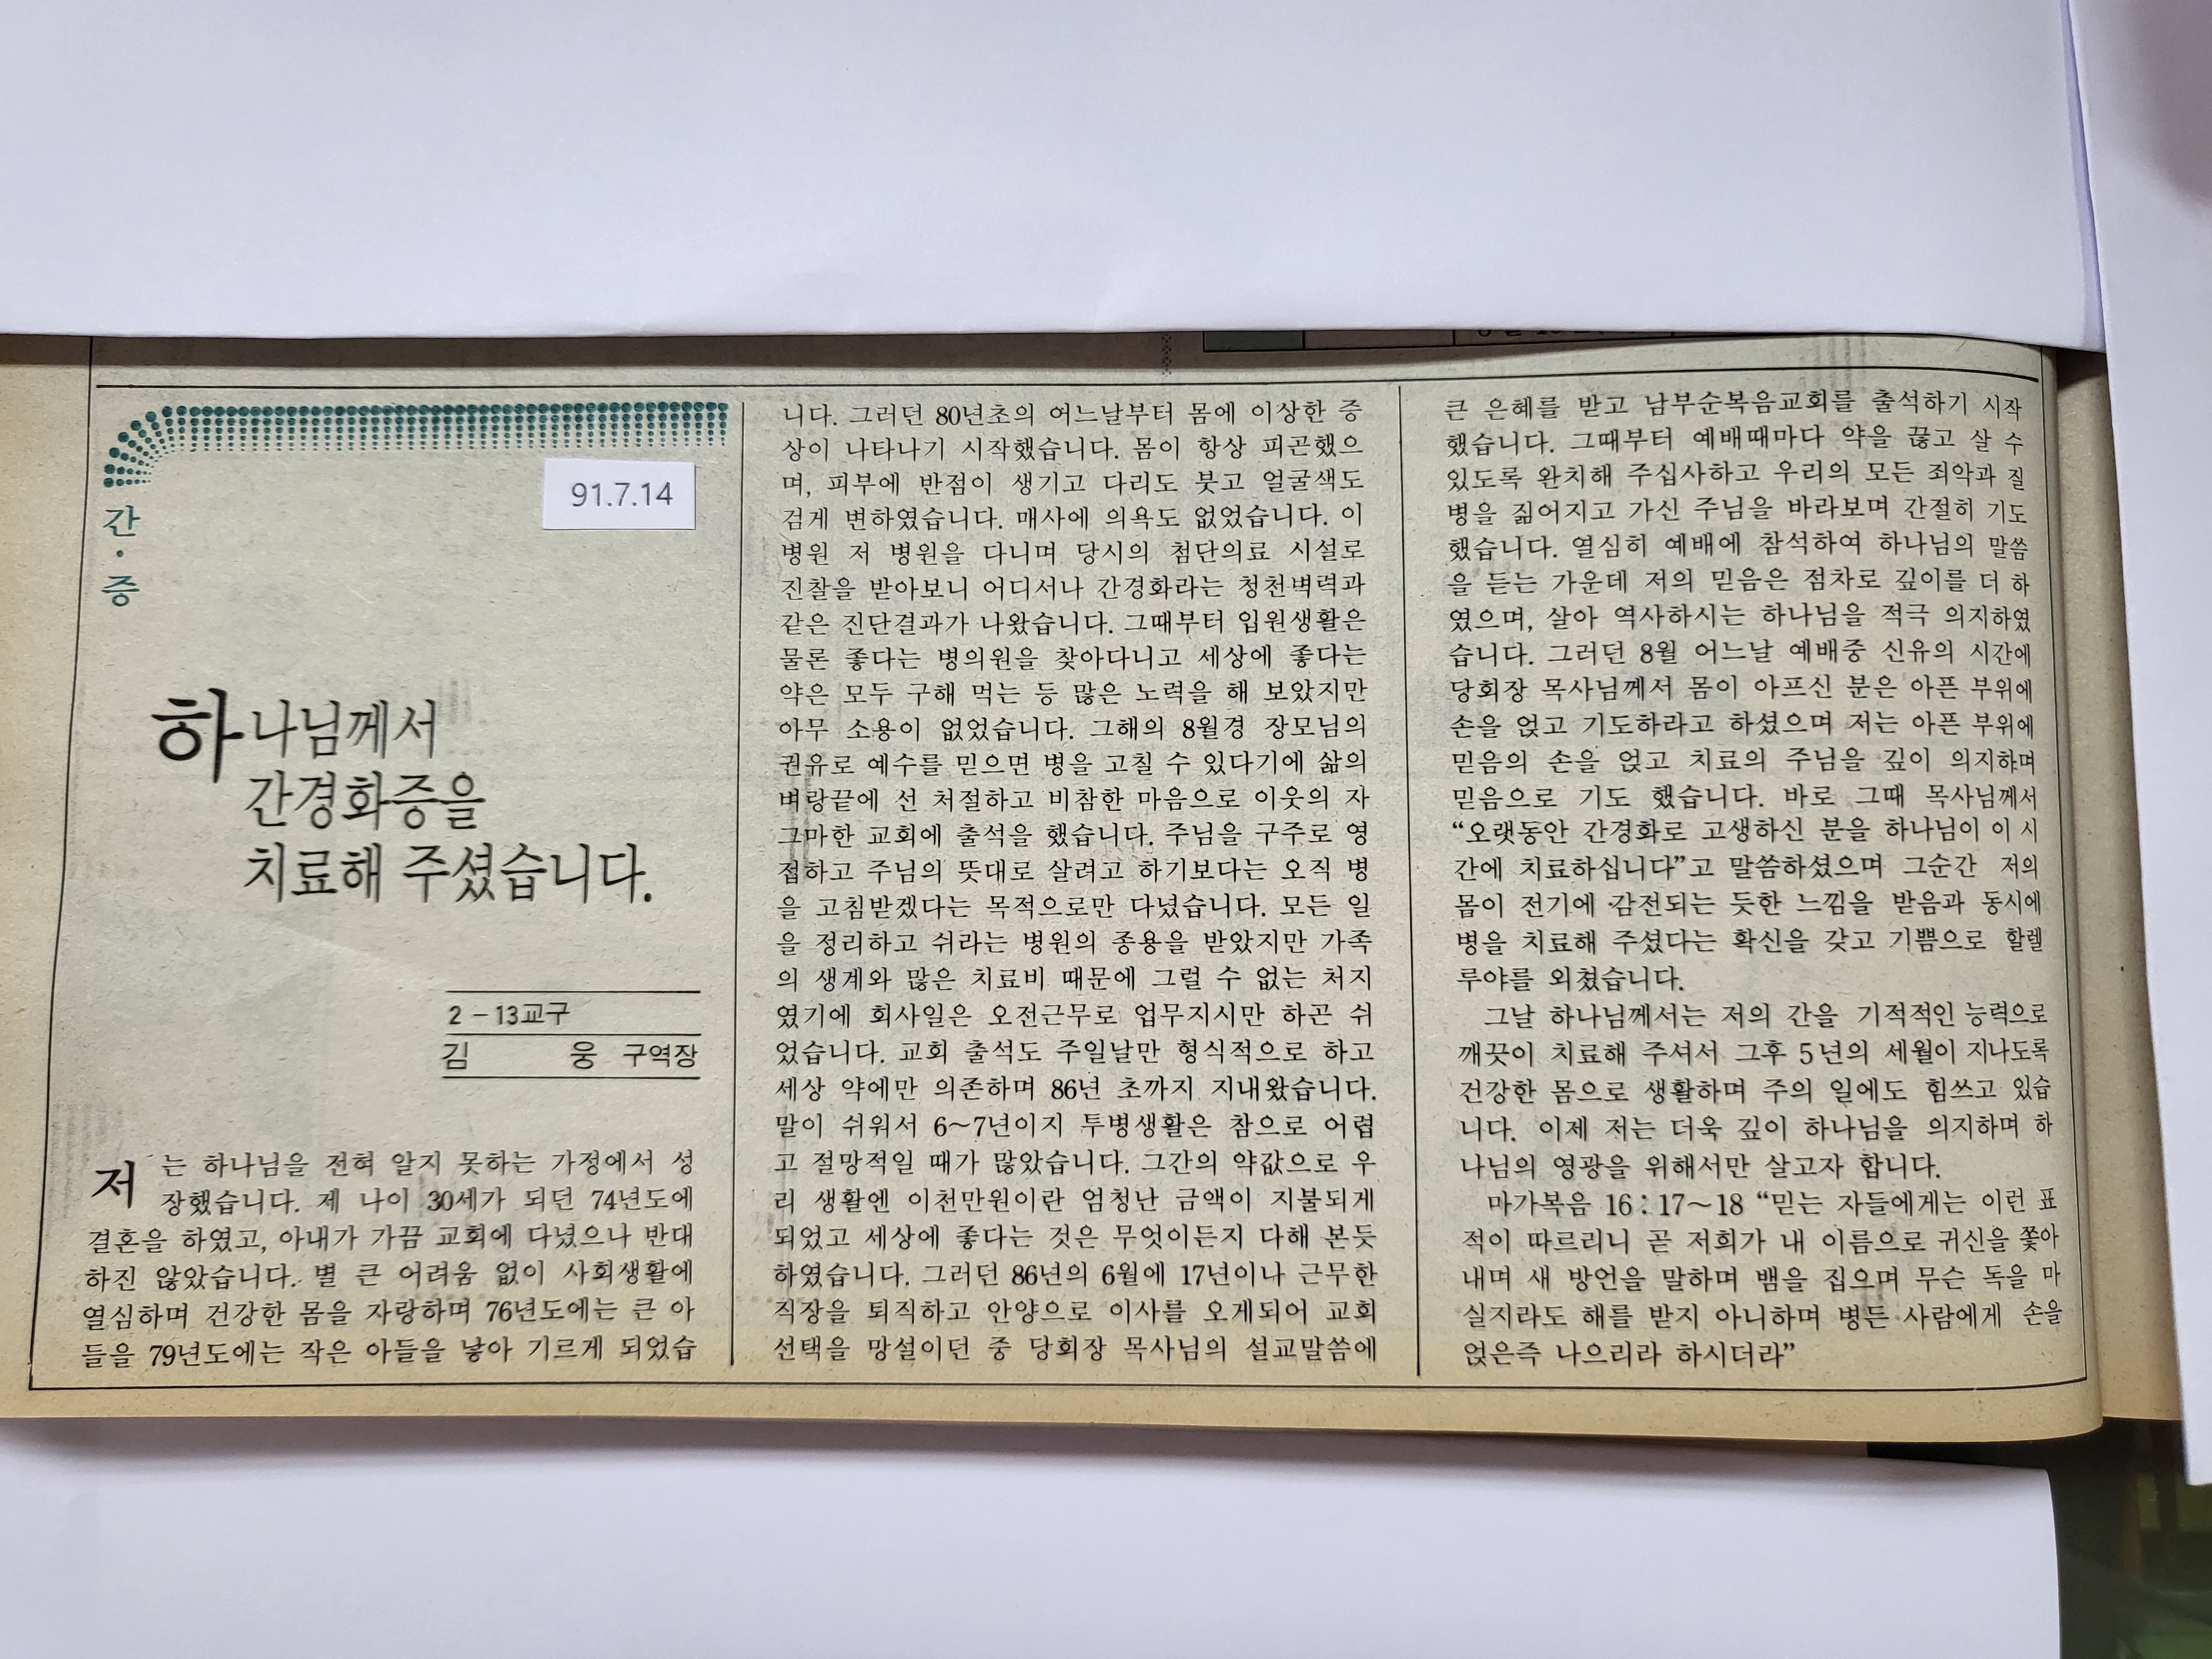 91.7.14
간·증
하나님께서
간경화증을
치료해 주셨습니다.
2-13교구
김 웅 구역장
저는 하나님을 전혀 알지 못하는 가정에서 성
장했습니다. 제 나이 30세가 되던 74년도에
결혼을 하였고, 아내가 가끔 교회에 다녔으나 반대
하진 않았습니다. 별 큰 어려움 없이 사회생활에
열심하며 건강한 몸을 자랑하며 76년도에는 큰 아
들을 79년도에는 작은 아들을 낳아 기르게 되었습
니다. 그러던 80년초의 어느날부터 몸에 이상한 증
상이 나타나기 시작했습니다. 몸이 항상 피곤했으
며, 피부에 반점이 생기고 다리도 붓고 얼굴색도
검게 변하였습니다. 매사에 의욕도 없었습니다. 이
병원 저 병원을 다니며 당시의 첨단의료 시설로
진찰을 받아보니 어디서나 간경화라는 청천벽력과
같은 진단결과가 나왔습니다. 그때부터 입원생활은
물론 좋다는 병의원을 찾아다니고 세상에 좋다는
약은 모두 구해 먹는 등 많은 노력을 해 보았지만
아무 소용이 없었습니다. 그해의 8월경 장모님의
권유로 예수를 믿으면 병을 고칠 수 있다기에 삶의
벼랑끝에 선 처절하고 비참한 마음으로 이웃의 자
그마한 교회에 출석을 했습니다. 주님을 구주로 영
접하고 주님의 뜻대로 살려고 하기보다는 오직 병
을 고침받겠다는 목적으로만 다녔습니다. 모든 일
을 정리하고 쉬라는 병원의 종용을 받았지만 가족
의 생계와 많은 치료비 때문에 그럴 수 없는 처지
였기에 회사일은 오전근무로 업무지시만 하곤 쉬
었습니다. 교회 출석도 주일날만 형식적으로 하고
세상 약에만 의존하며 86년 초까지 지내왔습니다.
말이 쉬워서 6~7년이지 투병생활은 참으로 어렵
고 절망적일 때가 많았습니다. 그간의 약값으로 우
리 생활엔 이천만원이란 엄청난 금액이 지불되게
되었고 세상에 좋다는 것은 무엇이든지 다해 본듯
하였습니다. 그러던 86년의 6월에 17년이나 근무한
직장을 퇴직하고 안양으로 이사를 오게되어 교회
선택을 망설이던 중 당회장 목사님의 설교말씀에
큰 은혜를 받고 남부순복음교회를 출석하기 시작
했습니다. 그때부터 예배때마다 약을 끊고 살 수
있도록 완치해 주십사하고 우리의 모든 죄악과 질
병을 짊어지고 가신 주님을 바라보며 간절히 기도
했습니다. 열심히 예배에 참석하여 하나님의 말씀
을 듣는 가운데 저의 믿음은 점차로 깊이를 더 하
였으며, 살아 역사하시는 하나님을 적극 의지하였
습니다. 그러던 8월 어느날 예배중 신유의 시간에
당회장 목사님께서 몸이 아프신 분은 아픈 부위에
손을 얹고 기도하라고 하셨으며 저는 아픈 부위에
믿음의 손을 얹고 치료의 주님을 깊이 의지하며
믿음으로 기도 했습니다. 바로 그때 목사님께서
“오랫동안 간경화로 고생하신 분을 하나님이 이 시
간에 치료하십니다”고 말씀하셨으며 그순간 저의
몸이 전기에 감전되는 듯한 느낌을 받음과 동시에
병을 치료해 주셨다는 확신을 갖고 기쁨으로 할렐
루야를 외쳤습니다.
그날 하나님께서는 저의 간을 기적적인 능력으로
깨끗이 치료해 주셔서 그후 5년의 세월이 지나도록
건강한 몸으로 생활하며 주의 일에도 힘쓰고 있습
니다. 이제 저는 더욱 깊이 하나님을 의지하며 하
나님의 영광을 위해서만 살고자 합니다.
마가복음 16:17~18 “믿는 자들에게는 이런 표
적이 따르리니 곧 저희가 내 이름으로 귀신을 쫓아
내며 새 방언을 말하며 뱀을 집으며 무슨 독을 마
실지라도 해를 받지 아니하며 병든 사람에게 손을
얹은즉 나으리라 하시더라”